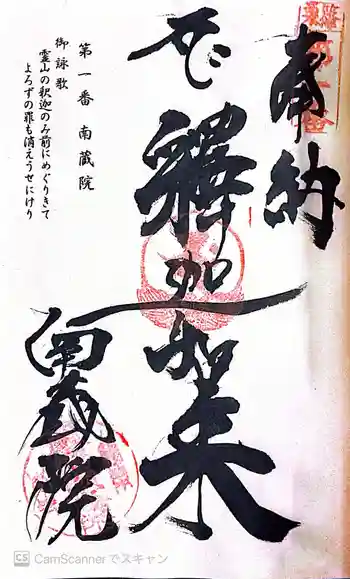 奉納
釋迦如来
南蔵院
第一番 南蔵院
御詠歌
霊山の釈迦のみ前にめぐりきて
よろずの罪も消えうせにけり
CS CamScanner でスキャン